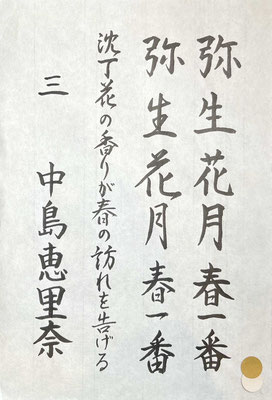 弥生花月春一番
弥生花月春一番
沈丁花の香りが春の訪れを告げる
三 中島恵里奈